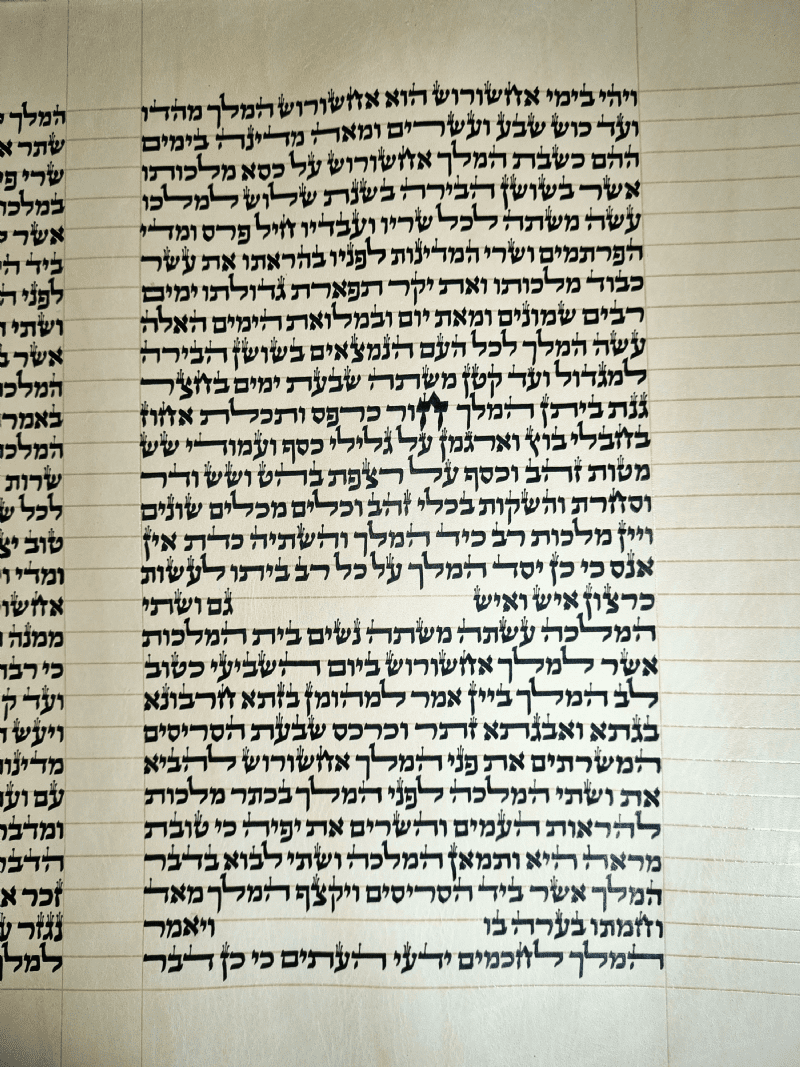 ויהי בימי אחשורוש הוא אחשורוש המלך מהדו
ועד כוש שבע ועשרים ומאה מדינה בימים
ההם כשבת המלך אחשורוש על כסא מלכותו
אשר בשושן הבירה בשנת שלוש למלכו
עשה משתה לכל שריו ועבדיו חיל פרס ומדי
הפרתמים ושרי המדינות לפניו בהראתו את עשר
כבוד מלכותו ואת יקר תפארת גדולתו ימים
רבים שמונים ומאת יום ובמלואת הימים האלה
עשה המלך לכל העם הנמצאים בשושן הבירה
למגדול ועד קטן משתה שבעת ימים בחצר
גנת ביתן המלך חור כרפס ותכלת אחוז
בחבלי בוץ וארגמן על גלילי כסף ועמודי שש
מטות זהב וכסף על רצפת בהט ושש ודר
וסחרת והשקות בכלי זהב וכלים מכלים שונים
ויין מלכות רב כיד המלך והשתיה כדת אין
אנס כי כן יסד המלך על כל רב ביתו לעשות
כרצון איש ואיש גם ושתי
המלכה עשתה משתה נשים בית המלכות
אשר למלך אחשורוש ביום השביעי כטוב
לב המלך ביין אמר למהומן בזתא חרבונא
בגתא ואבגתא זתר וכרכס שבעת הסריסים
המשרתים את פני המלך אחשורוש להביא
את ושתי המלכה לפני המלך בכתר מלכות
להראות העמים והשרים את יפיה כי טובת
מראה היא ותמאן המלכה ושתי לבוא בדבר
המלך אשר ביד הסריסים ויקצף המלך מאד
וחמתו בערה בו ויאמר
המלך לחכמים ידעי העתים כי כן דבר
המלך
שתר
שרי
במלכו
אשר
ביד
לפני
ושתי
אשר
המלכו
באמר
המלכו
שרות
לכל
טוב
ומדי
אחשו
ממנה
כי רבה
ועד
ויעש
מדינו
עם
ומדבר
הדבר
זכר
נגזר
למלך